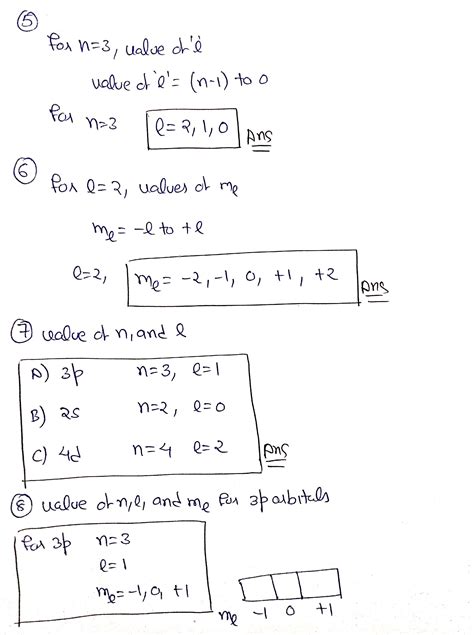 ⑤
For n=3, value of 'l'
value of 'l' = (n-1) to 0
For n=3 l = 2, 1, 0 Ans
⑥
For l=2, values of ml
ml = -l to +l
l=2, ml = -2, -1, 0, +1, +2 Ans
⑦ value of n, and l
A) 3p n=3, l=1
B) 2s n=2, l=0
C) 4d n=4 l=2 Ans
⑧ value of n, l, and ml for 3p orbitals
For 3p n=3
l=1
ml = -1, 0, +1
ml -1 0 +1